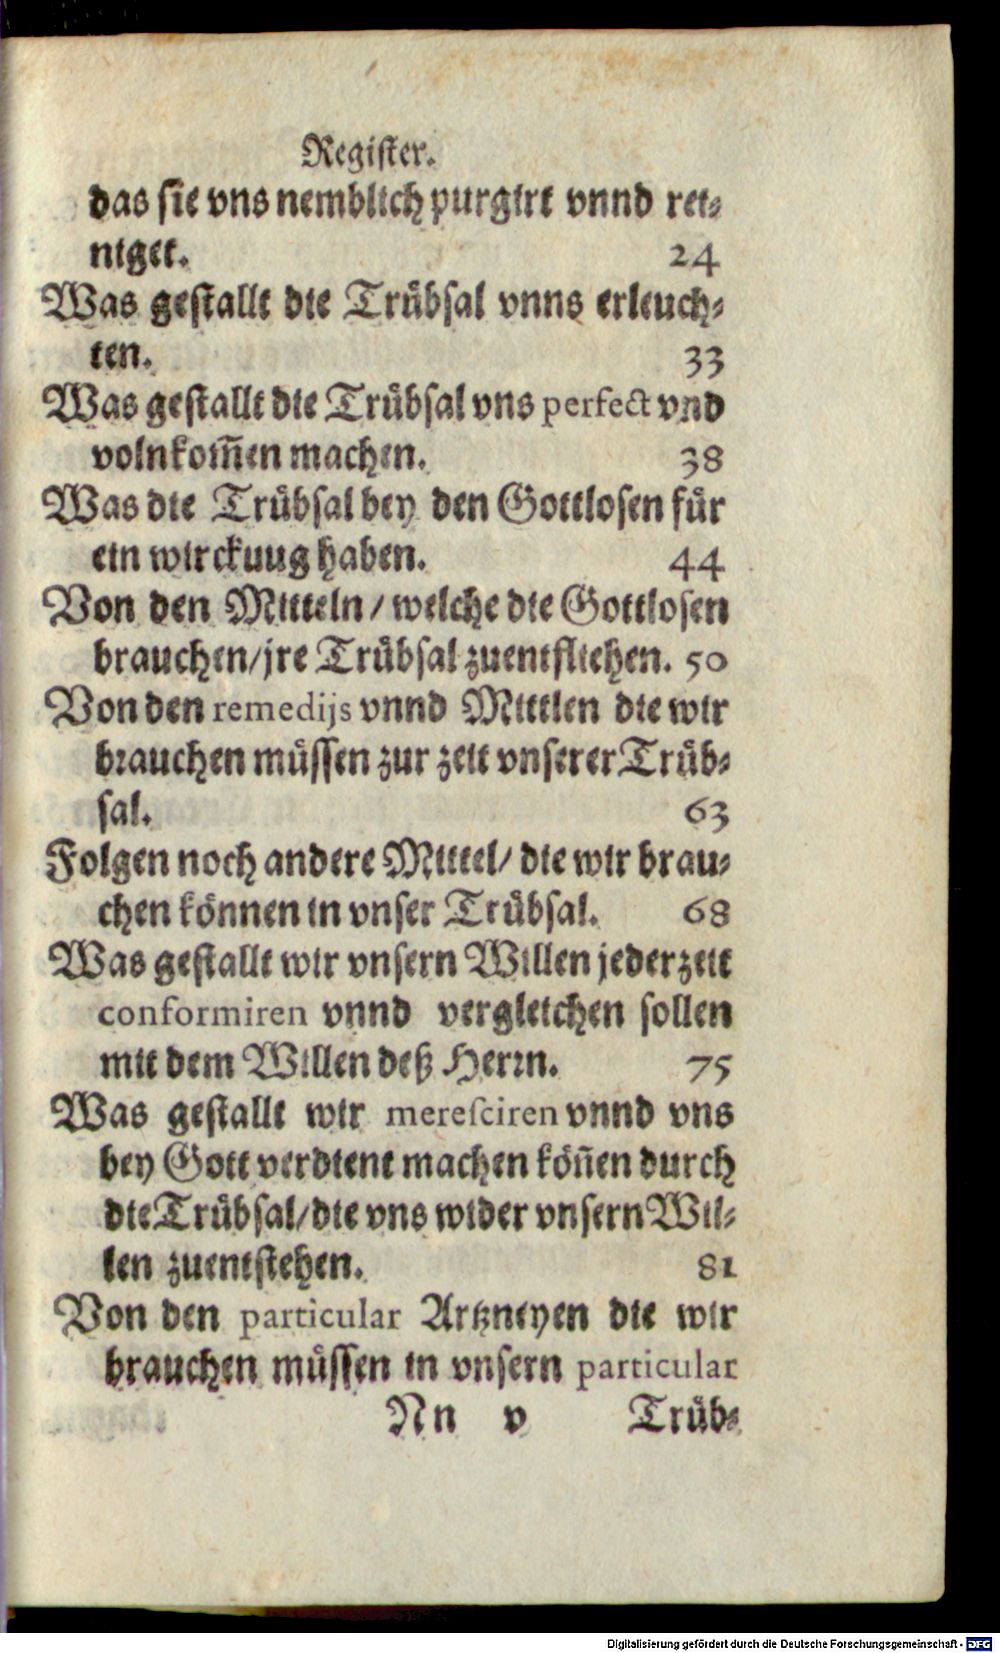 Register.
das sie vns nemblich purgirt vnnd rei-
niget. 24
Was gestallt die Trübsal vnns erleuch-
ten. 33
Was gestallt die Trübsal vns perfect vnd
volnkom̃en machen. 38
Was die Trübsal bey den Gottlosen für
ein wirckuug haben. 44
Von den Mitteln / welche die Gottlosen
brauchen / jre Trübsal zuentfliehen. 50
Von den remedijs vnnd Mittlen die wir
brauchen müssen zur zeit vnserer Trüb-
sal. 63
Folgen noch andere Mittel / die wir brau-
chen können in vnser Trübsal. 68
Was gestallt wir vnsern Willen jederzeit
conformiren vnnd vergleichen sollen
mit dem Willen deß Herrn. 75
Was gestallt wir meresciren vnnd vns
bey Gott verdient machen kön̄en durch
die Trübsal / die vns wider vnsern Wil-
len zuentstehen. 81
Von den particular Artzneyen die wir
brauchen müssen in vnsern particular
Nn v Trüb-
Digitalisierung gefördert durch die Deutsche Forschungsgemeinschaft - DFG